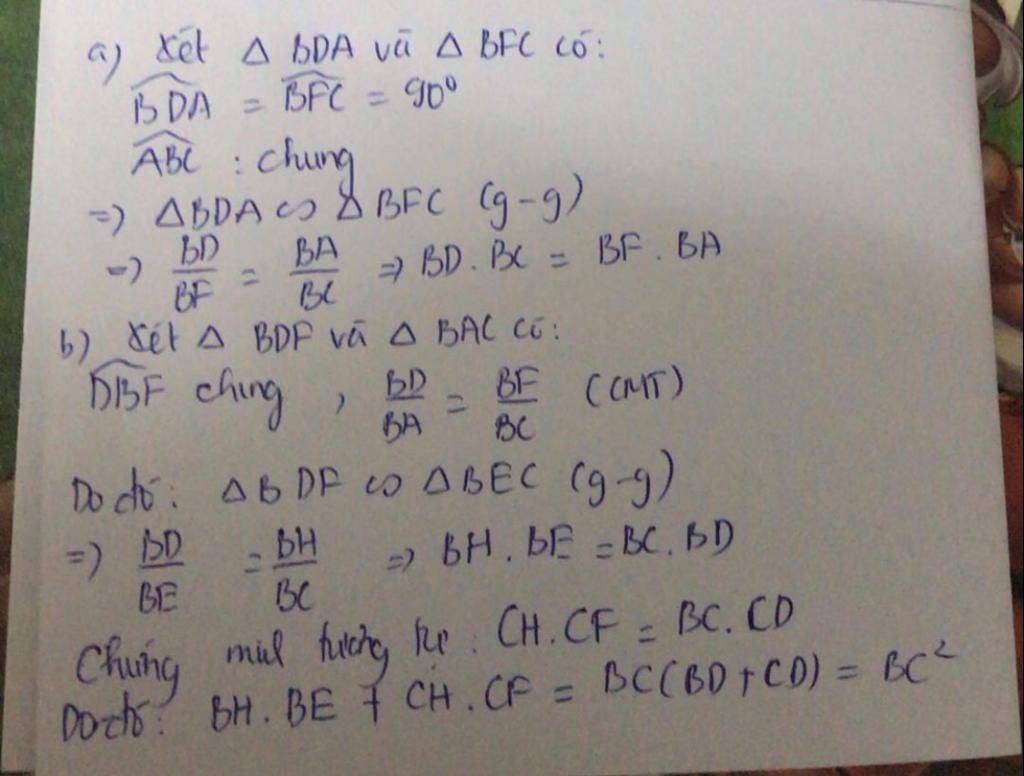 a) Xét Δ BDA và Δ BFC có:
BDA = BFC = 90⁰
ABC : chung
=> ΔBDA ∽ Δ BFC (g-g)
=> BD/BF = BA/BC => BD. BC = BF. BA
b) Xét Δ BDF và Δ BAC có:
DBF chung , BD/BA = BF/BC (CMT)
Do đó: Δ BDF ∽ ΔBEC (g-g)
=> BD/BE = BH/BC => BH. BE = BC. BD
Chứng minh tương tự: CH.CF = BC.CD
Do đó: BH.BE + CH.CF = BC(BD+CD) = BC²